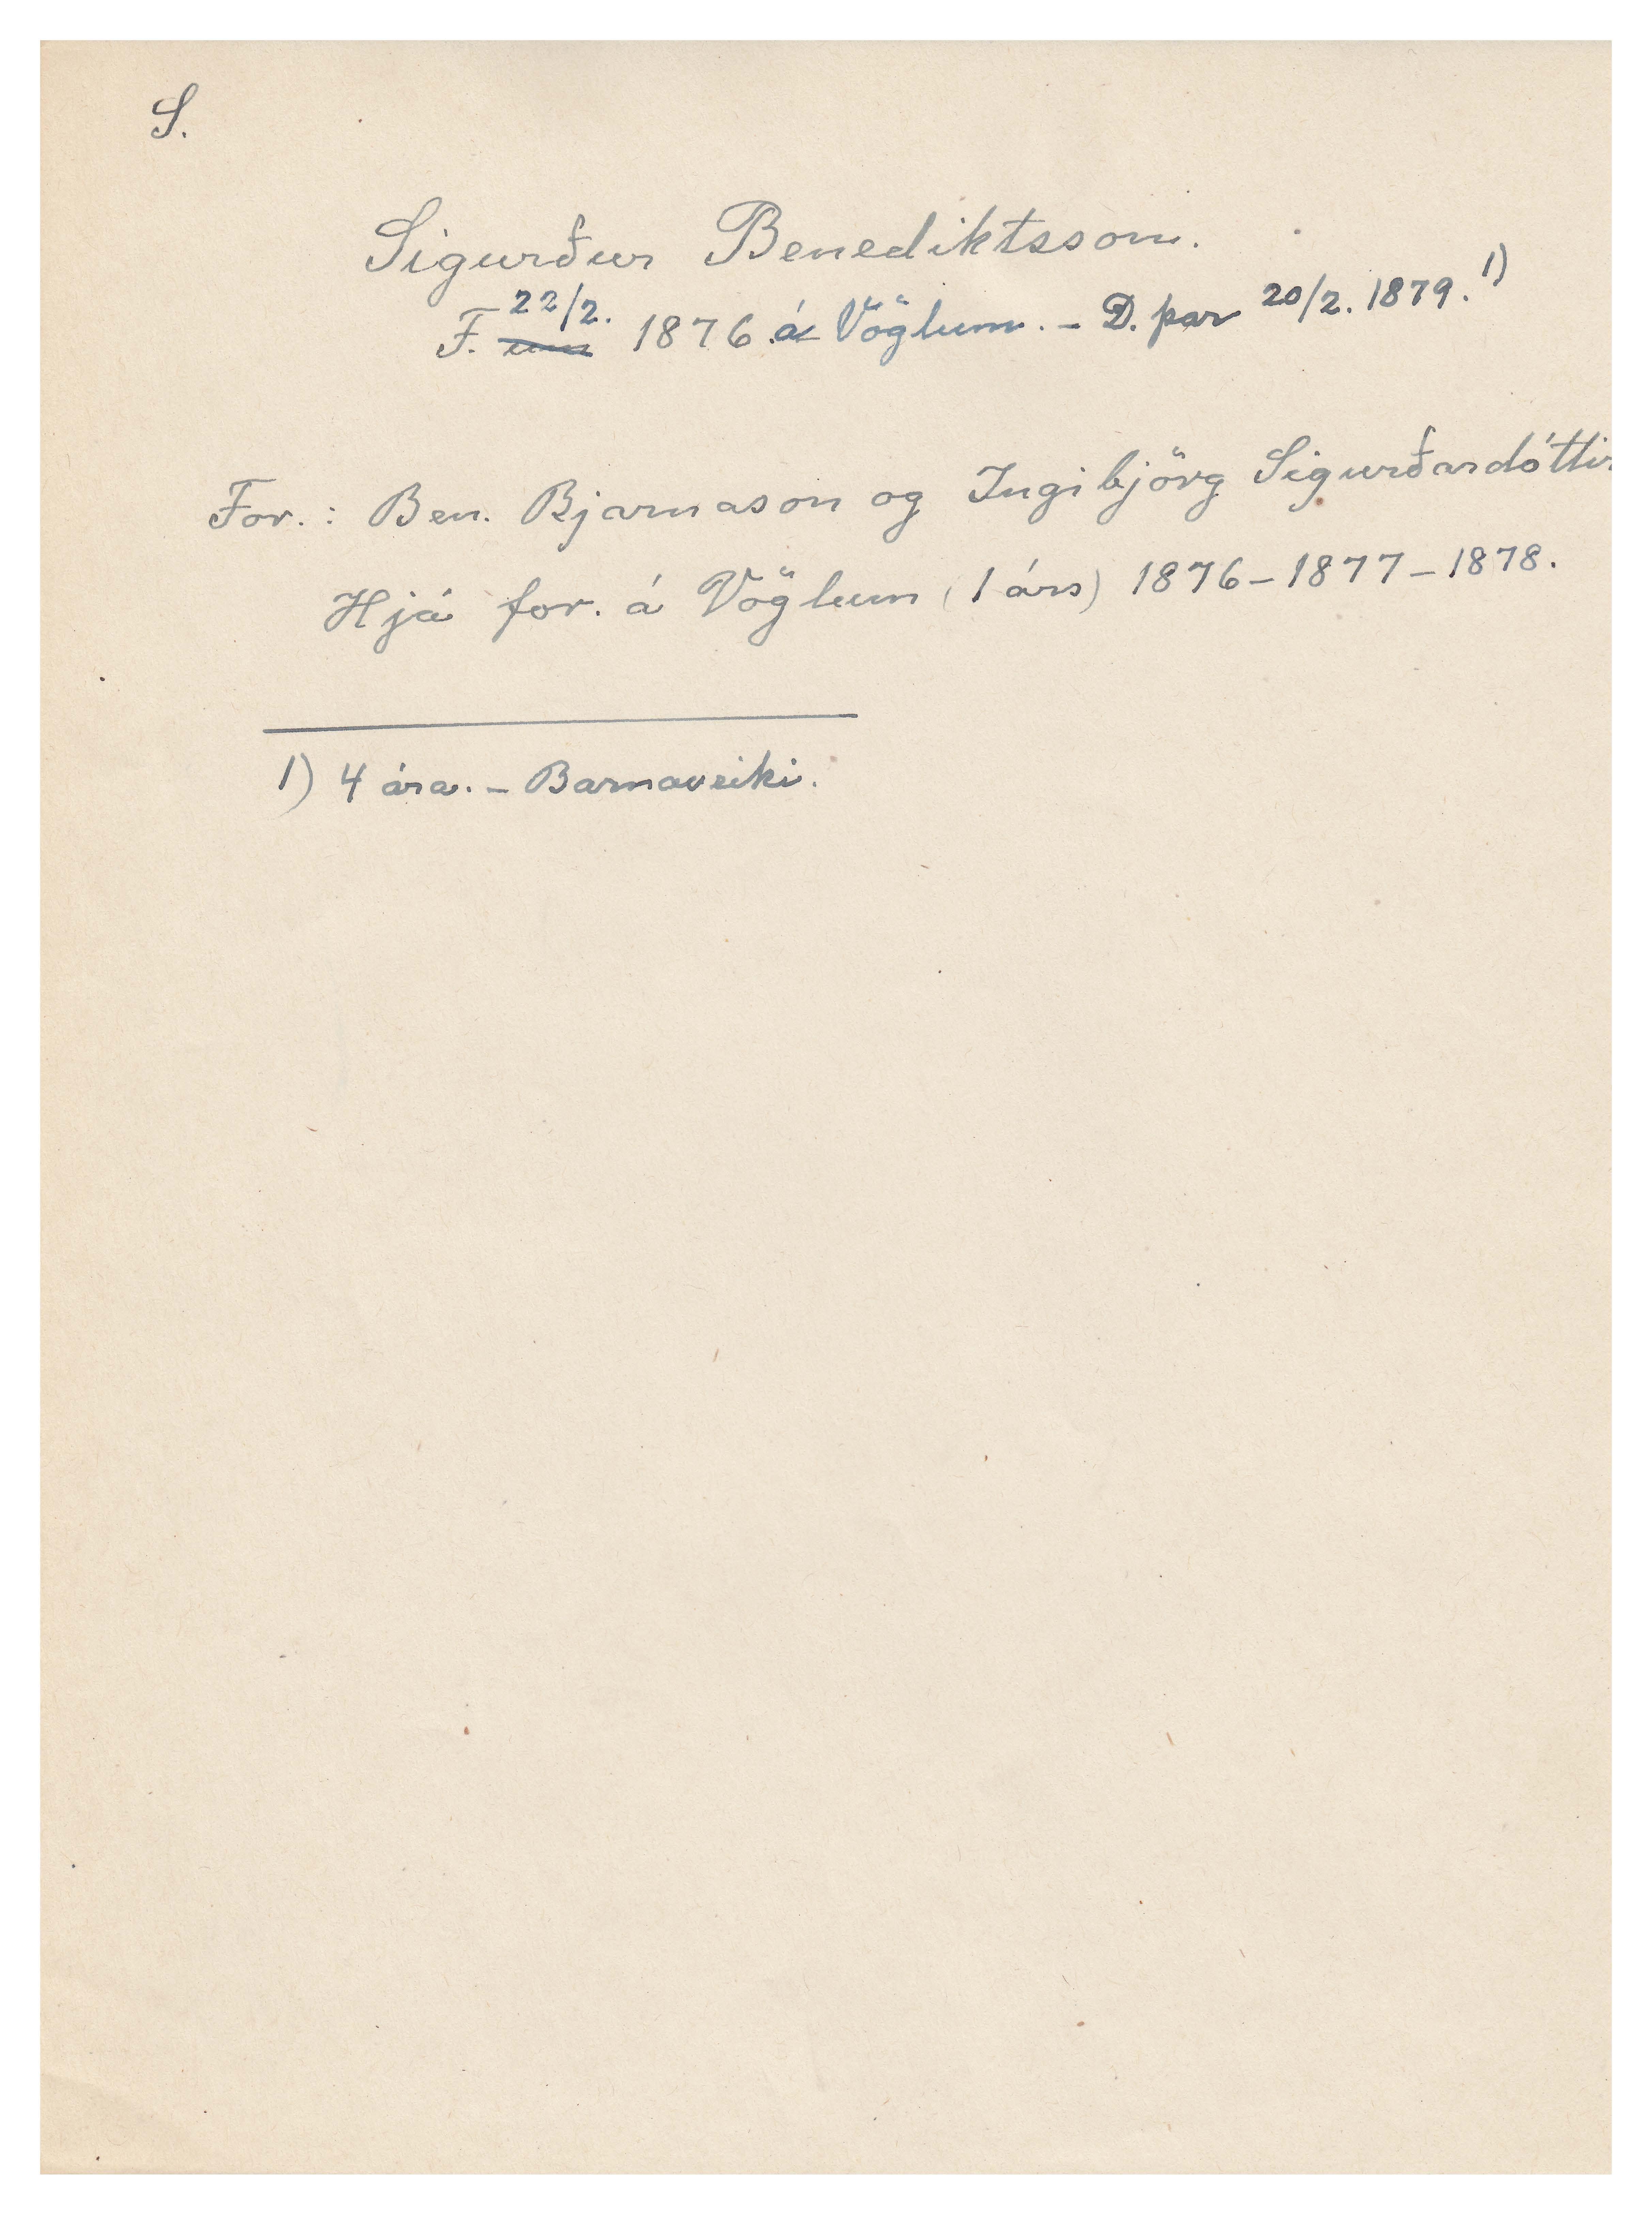 S.
Sigurður Benediktsson.
F. um 22/2. 1876 á Vöglum. – D. þar 20/2. 1879. 1)
For.: Ben. Bjarnason og Ingibjörg Sigurðardóttir
Hjá for. á Vöglum (1 árs) 1876–1877–1878.
1) 4 ára. – Barnaveiki.